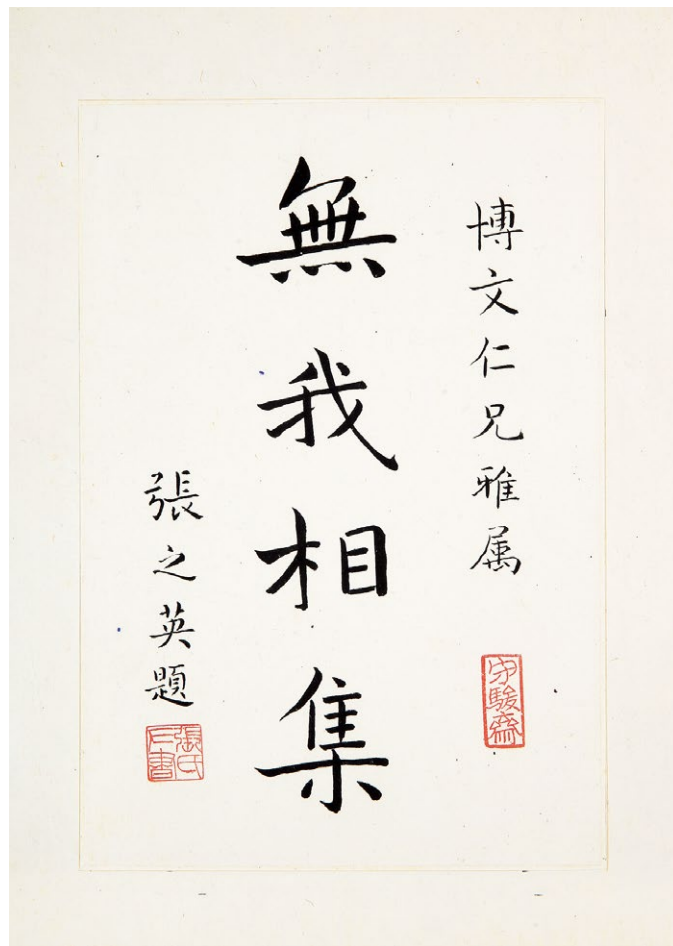 博文仁兄雅属
守駿齋
無我相集
張之英題
張氏